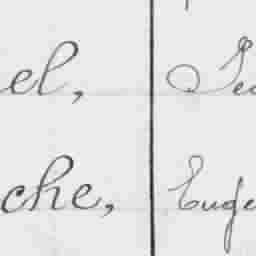 el,
che, Euge